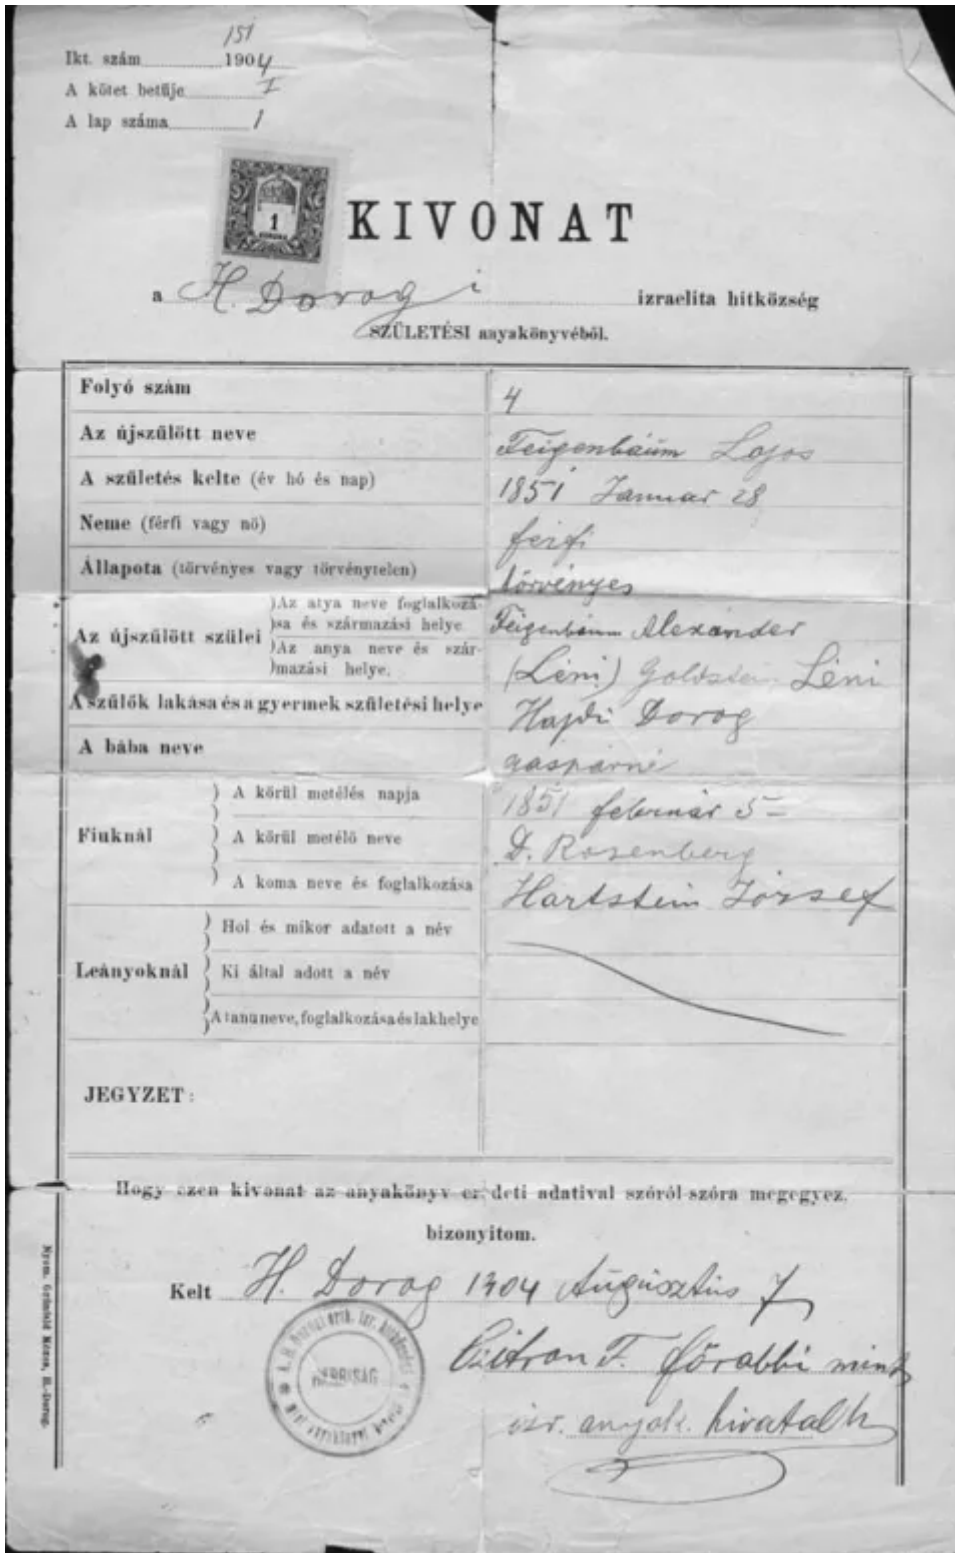 151
Ikt. szám 1904
A kötet betűje I
A lap száma 1
1
KORONA
KIVONAT
a H. Dorogi izraelita hitközség
SZÜLETÉSI anyakönyvéből.
Folyó szám 4
Az újszülött neve Feigenbaum Lajos
A születés kelte (év hó és nap) 1851 Januar 28
Neme (férfi vagy nő) férfi
Állapota (törvényes vagy törvénytelen) törvényes
Az újszülött szülei
)Az atya neve foglalkozá-
)sa és származási helye Feigenbaum Alexander
)Az anya neve és szár-
)mazási helye. (Léni) Goldstein Léni
A szülők lakása és a gyermek születési helye Hajdu Dorog
A bába neve gáspárné
Fiuknál
A körül metélés napja 1851 február 5-
A körül metélő neve D. Rosenberg
A koma neve és foglalkozása Hartstein József
Leányoknál
Hol és mikor adatott a név
Ki által adott a név
A tanu neve, foglalkozása és lakhelye
JEGYZET:
Hogy ezen kivonat az anyakönyv eredeti adatival szóról-szóra megegyez,
bizonyitom.
Kelt H. Dorog 1904 Augusztus 7
Citron F. főrabbi mint
izr. anyak. hivatalh
Nyom. Grünfeld Mózes, H.-Dorog.